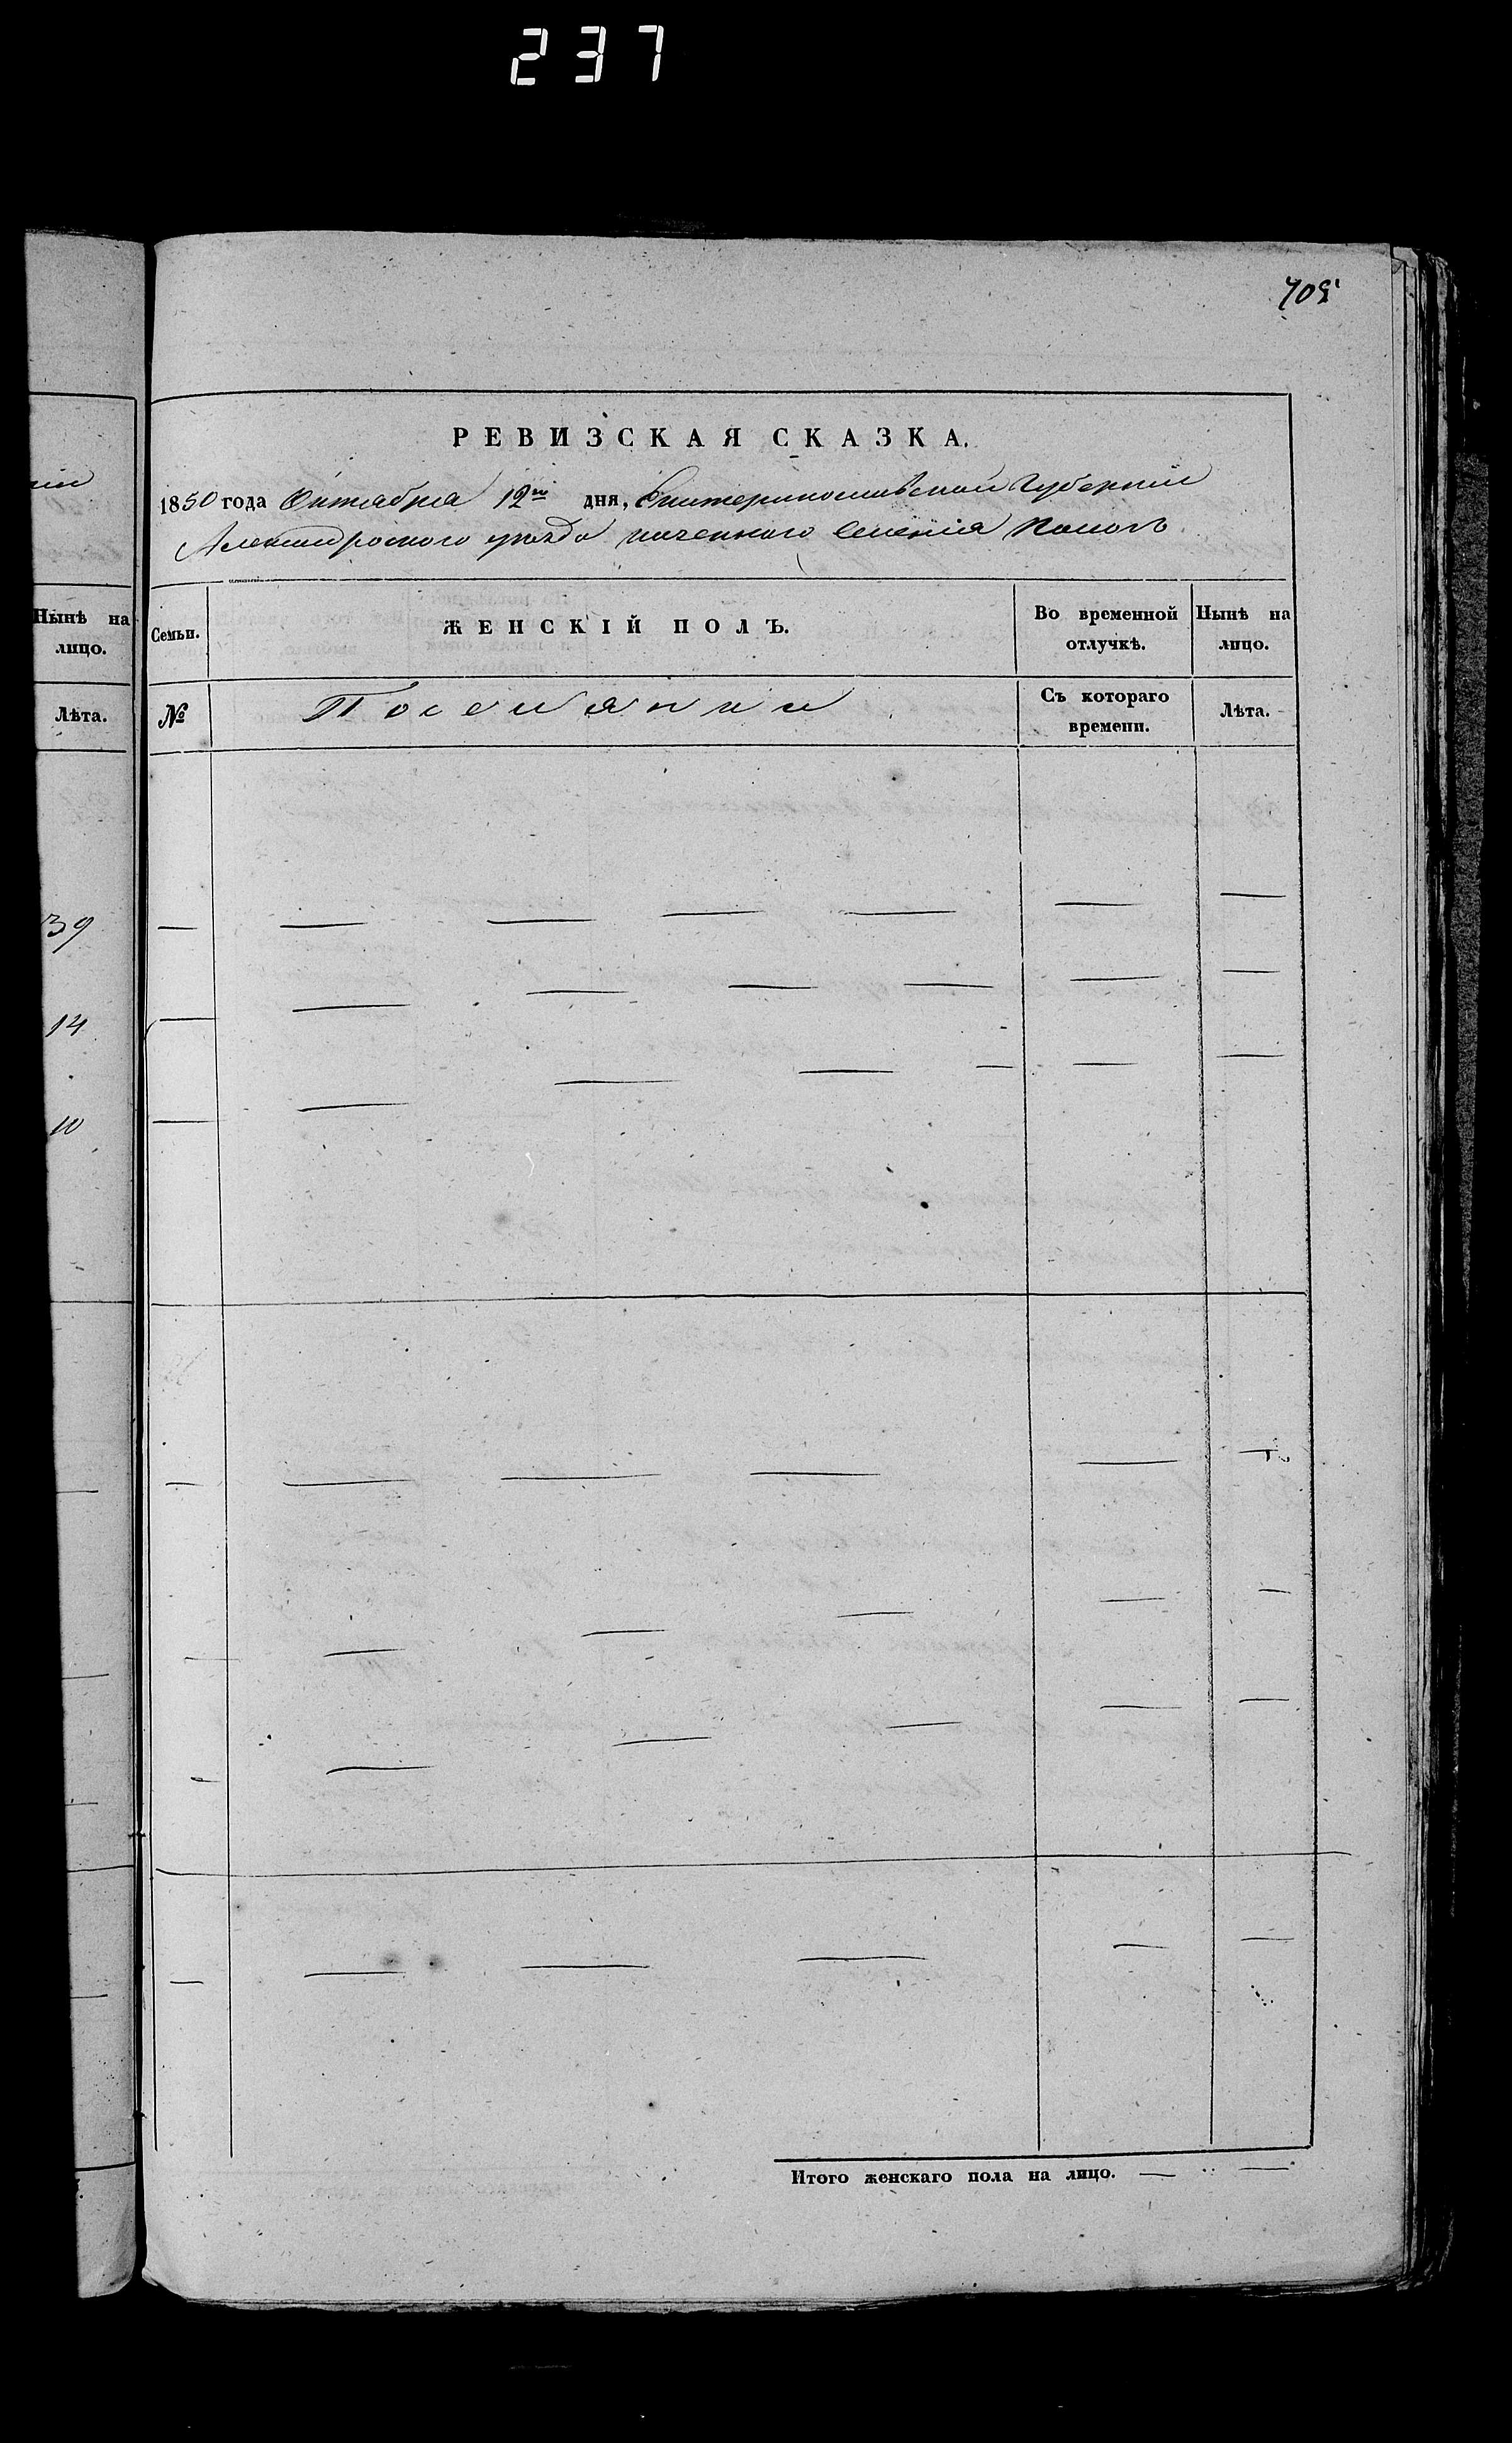 237
705
РЕВИЗСКАЯ СКАЗКА.
1850 года Октября 12го дня, Екатеринославской Губернии
Александровского уезда казенного Селения
Нынѣ на лицо.
Лѣта.
39
14
10
Семьи.
ЖЕНСКІЙ ПОЛЪ.
Во временной отлучкѣ.
Нынѣ на лицо.
№
Поселянки
Съ котораго времени.
Лѣта.
— — — — — — —
— — — — — — —
— — — — — —
— — — — — —
— — — — — —
— — — — — —
— — — — — —
Итого женскаго пола на лицо. — —